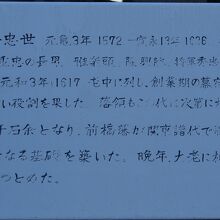 忠世 元亀3年 1572 — 寛永13年 1636
忠の長男、雅楽頭、
元和3年(1617) 老中に列し、創業期の幕
い役割を果した。落領も二代に次第に
千石余となり、前橋藩が関東譜代で
なる基礎を築いた。晩年、大老に
つとめた。